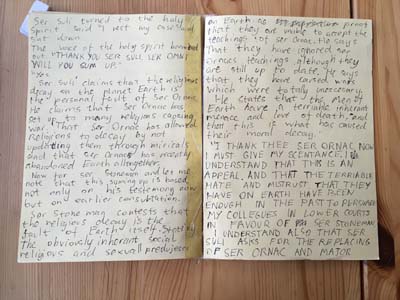 Ser Suli turned to the holy
spirit said "I rest my case" and
sat down.
The voice of the holy spirit boomed
out "THANK YOU SER SULI, SER OMNI
WILL YOU SUM UP."
"Yes
Ser Suli claims that the religious
decay on the planet Earth is
the personal fault of Ser Ornac.
He claims that Ser Ornac has
set up to many religions causing
war. That Ser Ornac has allowed
Religions to decay by not
updating them
and that Ser Ornac has recently
abandoned Earth alltogether.
Now for ser. Stoneman and let me
note that this summing up is based
not only on his testemony now
but on earlier consultation.
Ser Stoneman contests that
the religious decay is the
fault of Earth itself. Stating
The obviously inherant social
religious and sexuall predujeses
on Earth as proof
that they are unable to accept the
teachings of ser Ornac. He says
That they have ignored ser
Ornacs teachings although they
are still up to date. He says
that they have caused wars
which were totaly unnecesary.
He states that the men of
Earth have a terrible inherant
menace and love of death, and
that this is what has caused
their moral decay."
"I THANK THEE SER ORNAC, NOW
I MUST GIVE MY SCENTANCE, I
UNDERSTAND THAT THIS IS AN
APPEAL, AND THAT THE TERRIABLE
HATE AND MISTRUST THAT THEY
HAVE ON EARTH HAVE BEEN
ENOUGH IN THE PAST TO PERSUADE
MY COLLEGUES IN LOWER COURTS
IN FAVOUR OF SER STONEMAN
I UNDERSTAND ALSO THAT SER
SULI ASKS FOR THE REPLACING
OF SER ORNAC AND MAJOR